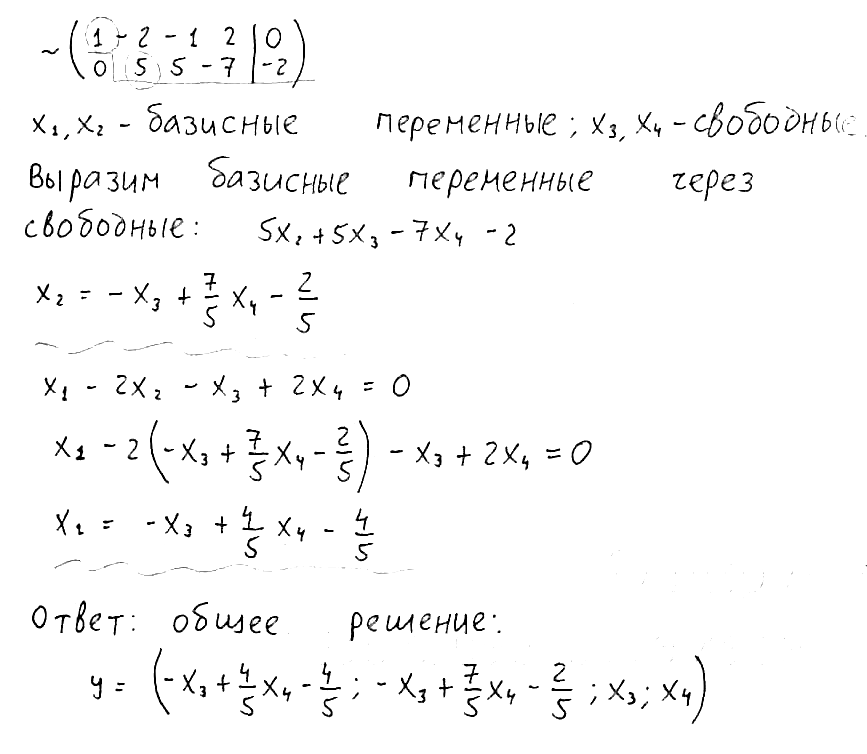 ~ ( 1 - 2 - 1 2 | 0
0 5 5 - 7 | -2 )
x₁, x₂ - базисные переменные; x₃, x₄ - свободные.
Выразим базисные переменные через
свободные: 5x₂ + 5x₃ - 7x₄ - 2
x₂ = - x₃ + 7/5 x₄ - 2/5
x₁ - 2x₂ - x₃ + 2x₄ = 0
x₁ - 2(-x₃ + 7/5 x₄ - 2/5) - x₃ + 2x₄ = 0
x₁ = -x₃ + 4/5 x₄ - 4/5
Ответ: общее решение:
y = (-x₃ + 4/5 x₄ - 4/5; - x₃ + 7/5 x₄ - 2/5; x₃; x₄)